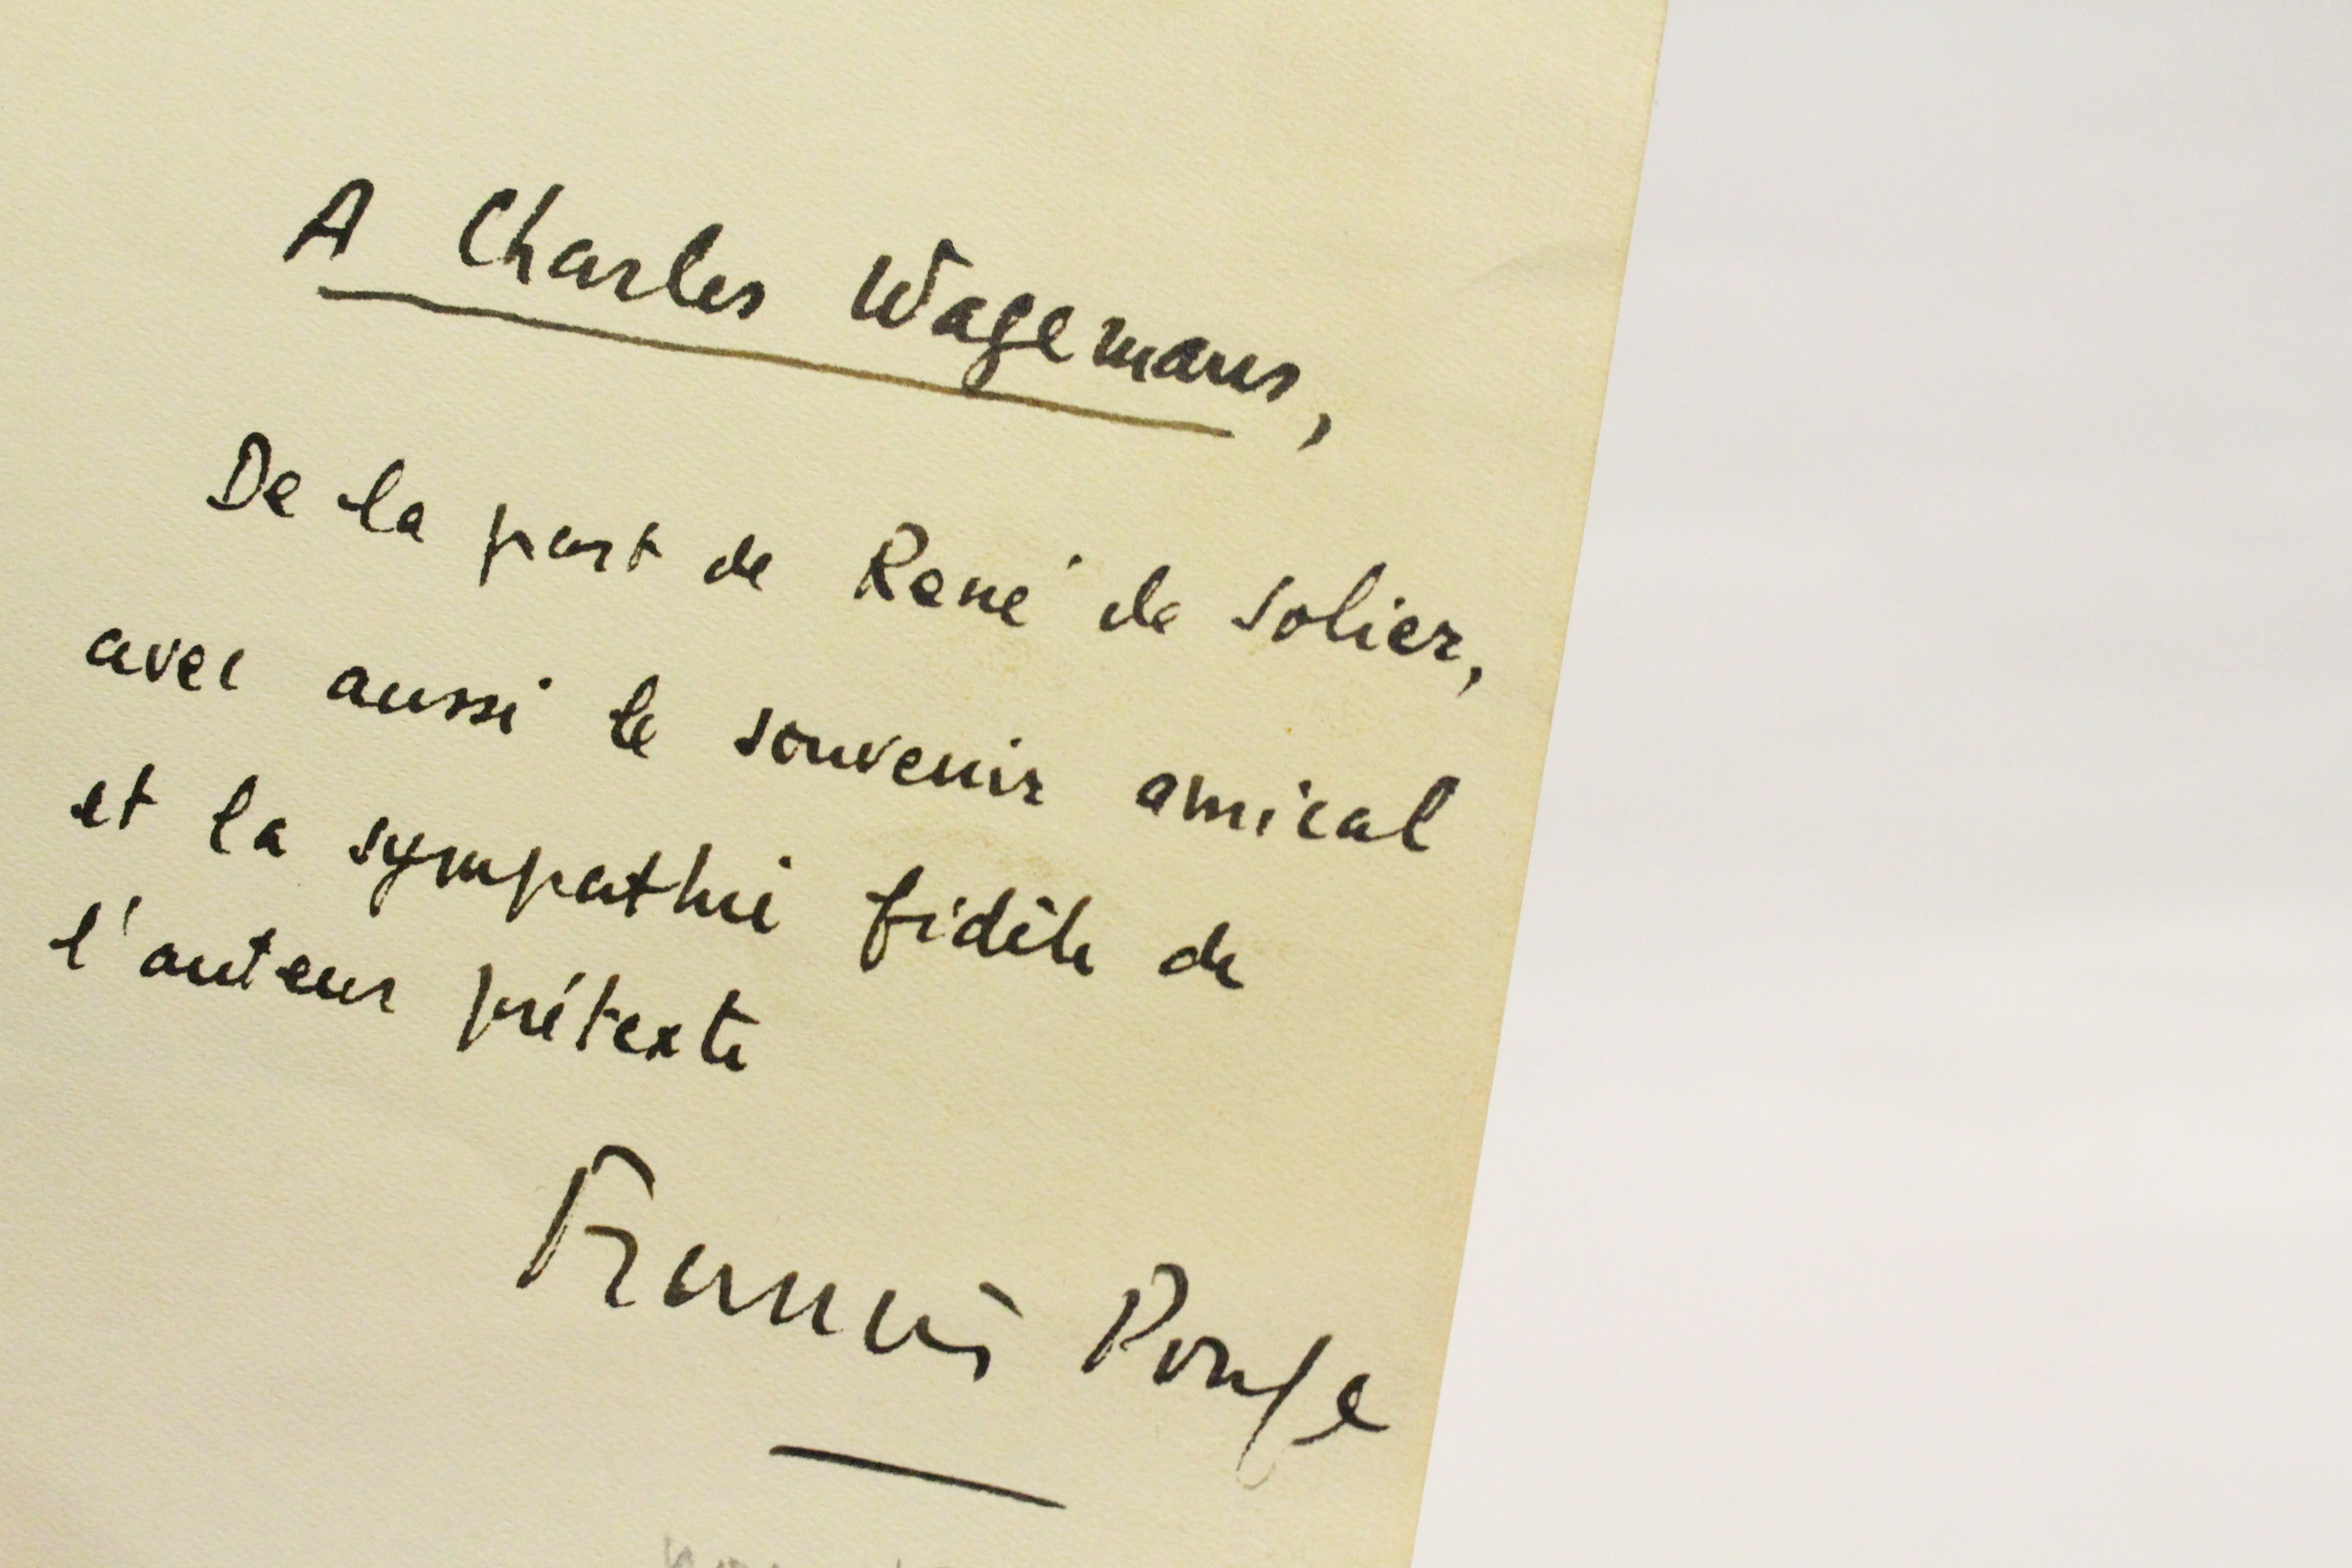 A Charles Wagemans,
De la part de René de Solier,
avec aussi le souvenir amical
et la sympathie fidèle de
l'auteur prétexte
Francis Ponge